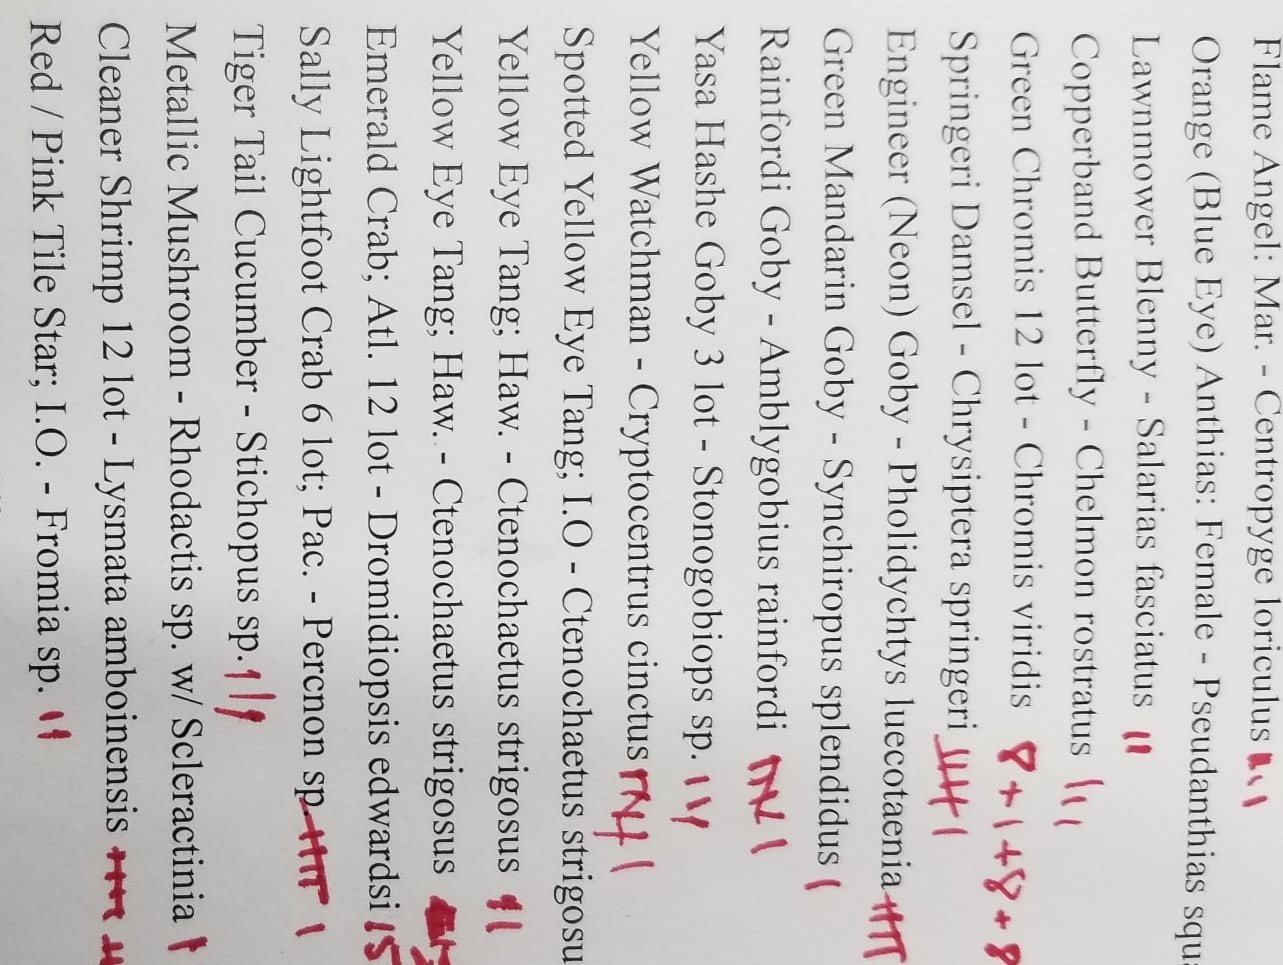 Flame Angel: Mar. - Centropyge loriculus
Orange (Blue Eye) Anthias: Female - Pseudanthias squa
Lawnmower Blenny - Salarias fasciatus II
Copperband Butterfly - Chelmon rostratus III
Green Chromis 12 lot - Chromis viridis 8+1+8+8
Springeri Damsel - Chrysiptera springeri
Engineer (Neon) Goby - Pholidychtys luecotaenia
Green Mandarin Goby - Synchiropus splendidus I
Rainfordi Goby - Amblygobius rainfordi
Yasa Hashe Goby 3 lot - Stonogobiops sp. III
Yellow Watchman - Cryptocentrus cinctus
Spotted Yellow Eye Tang; I.O - Ctenochaetus strigosu
Yellow Eye Tang; Haw. - Ctenochaetus strigosus II
Yellow Eye Tang; Haw. - Ctenochaetus strigosus
Emerald Crab; Atl. 12 lot - Dromidiopsis edwardsi 15
Sally Lightfoot Crab 6 lot; Pac. - Percnon sp.
Tiger Tail Cucumber - Stichopus sp. III
Metallic Mushroom - Rhodactis sp. w/ Scleractinia I
Cleaner Shrimp 12 lot - Lysmata amboinensis
Red / Pink Tile Star; I.O. - Fromia sp. II